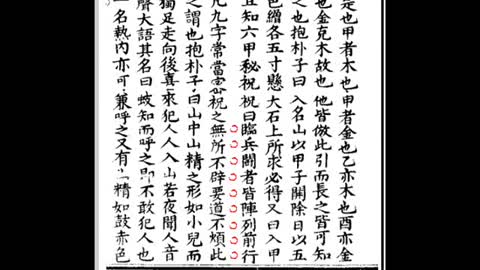 是也甲者木也甲者金也乙亦木也酉亦金
也金克木故也他皆倣此引而長之皆可知
之也抱朴子曰入名山以甲子開除日以五
色繒各五寸懸大石上所求必得又曰入甲
且知六甲秘祝祝曰臨兵鬪者皆陣列前行
凡九字常當密祝之無所不辟要道不煩此
之謂也抱朴子曰山中山精之形如小兒而
獨足走向後喜來犯人人入山若夜聞人音
聲大語其名曰蚑知而呼之即不敢犯人也
一名熱內亦可兼呼之又有山精如鼓赤色